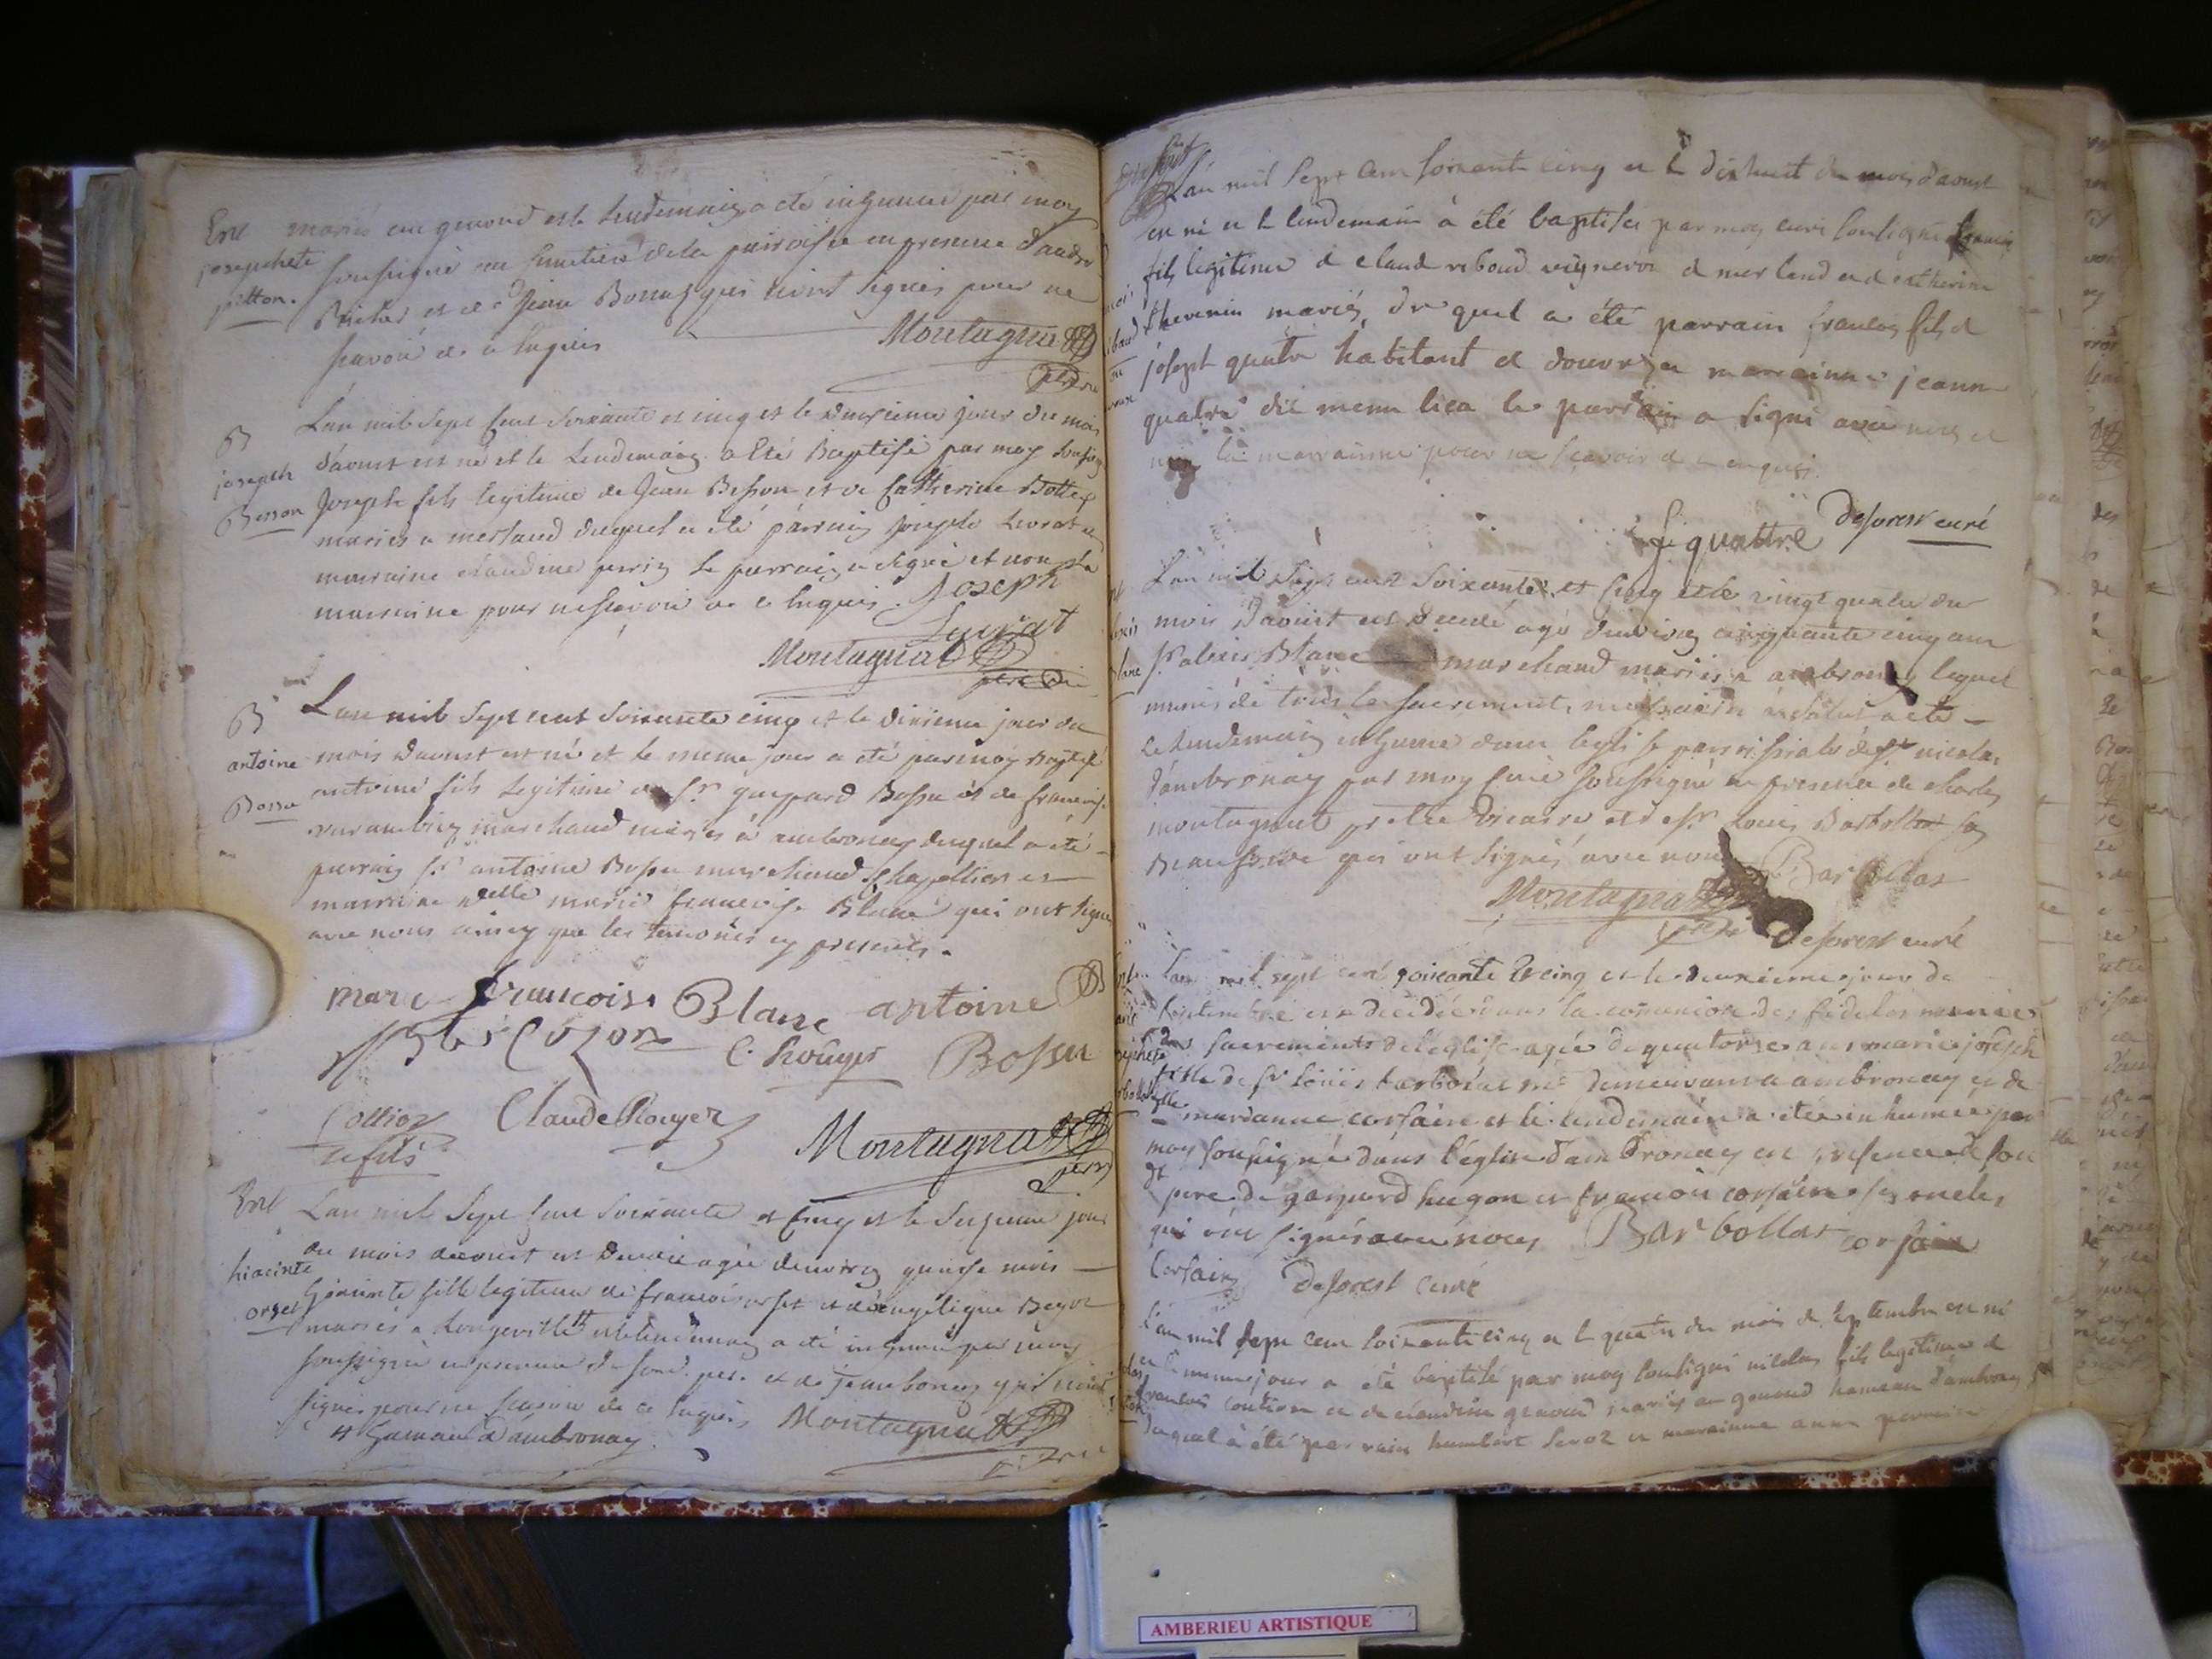 Ent mariés au genoud et le lendemain a été inhumée par moy
josephete soussigné au cimetiere de la paroisse en presence d'andré
pitton. Bicher et de Jean Bonnet qui n'ont signés pour ne
savoir de ce enquis
Montagnat
B L'an mil sept cent soixante et cinq et le jour du mois
joseph d'aoust est né et le lendemaing a été Baptisé par moy soussigné
Besson Joseph fils legitime de Jean Besson et de Catherine Bottex
mariés a merland duquel a été parraing joseph et
marraine claudine perrin le parraing a signé et non la
marraine pour ne scavoir de ce enquis. Joseph
Montagnat
B L'an mil sept cent soixante cinq et le dixieme jour du
antoine mois d'aoust est né et le meme jour a été par moy Baptisé
Bossu antoine fils legitime de Sr gaspard Bossu et de françoise
marchand mariés à ambronay duquel a été
parraing Sr antoine Bossu marchand chapellier et
marraine delle marie françoise Blanc qui ont signé
avec nous ainsy que les temoins cy presents.
marie francoise Blanc antoine
C. Rouyer Bossu
Collioz Claude Rouyer
le fils Montagnat
Ent L'an mil sept cent soixante et cinq et le seizieme jour
du mois d'aoust est decedée agée d'environ quinse mois
hiacinte hiacinte fille legitime de françois orset et d'angelique
orset mariés a longeville # et le lendemaing a été inhumée par moy
soussigné en presence de son pere et de jean bonnet qui n'ont
signés pour ne scavoir de ce enquis Montagnat
# hameau d'ambronay.
L'an mil sept cent soixante cinq et le dixhuit du mois d'aoust
est né et le lendemain à été baptisé par moy curé soussigné françois
fils legitime de claude riboud vigneron de merland et de catherine
thevenin mariés, du quel a été parrain françois fils de
joseph quatre habitant de douvre et marrainne jeanne
quatre dit le parrain a signé avec nous et
non la marrainne pour ne scavoir de ce enquis.
f. quattre deforest curé
L'an mil sept cent soixante et cinq et le vingt quatre du
mois d'aoust est decedé agé d'environ cinquante cinq ans
Sr alexis Blanc marchand mariés a ambronay lequel
munis de tous les sacrements a été
le lendemaing inhumé dans l'eglise parroissiale de St nicolas
d'ambronay par moy curé soussigné en presence de charles
montagnat pretre vicaire et de Sr Louis Barbollat son
Beaufrere qui ont signés avec nous Barbollat
Montagnat
deforest curé
L'an mil sept cent soixante et cinq et le deuxieme jour de
septembre est decedée dans la communion des fideles munie
des sacrements de l'église agée de quatorze ans marie joseph
fille de Sr Loüis barbolat md demeurant a ambronay et de
marianne corsain et le lendemain a été inhumée par
moy soussigné dans l'église d'ambronay en presence de son
pere de gaspard hugon et françois corsain ses oncles
qui ont signés avec nous Barbollat corsain
Corsain deforest curé
L'an mil sept cent soixante cinq et le quatre du mois de septembre est né
et le meme jour a été baptisé par moy soussigné nicolas fils legitime de
françois et de claudine genoud mariés au genoud hameau d'ambronay
duquel à été parrain humbert et marrainne anne
AMBERIEU ARTISTIQUE